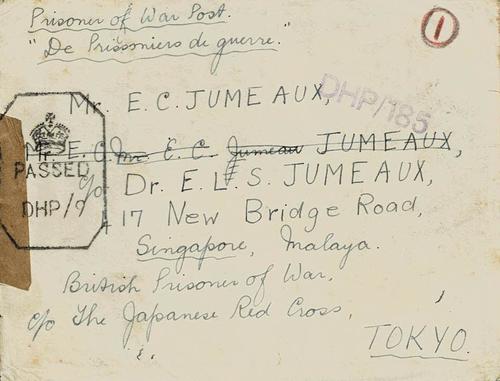 Prisoner of War Post.
"De Prissoniers de guerre."
1
Mr. E.C. JUMEAUX,
DHP/185
Mr. E. C. Mr. E. C. Jumeau JUMEAUX,
PASSED
DHP/9
c/o Dr. E. L. S. JUMEAUX,
17 New Bridge Road,
Singapore, Malaya.
British Prisoner of War,
c/o The Japanese Red Cross,
TOKYO.